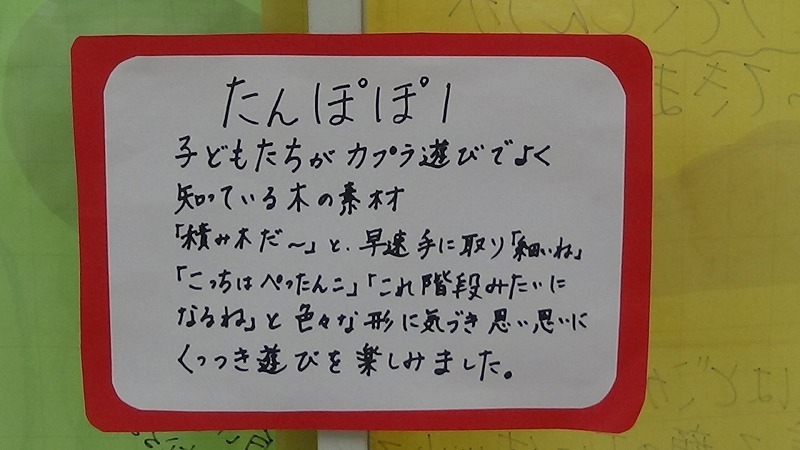 たんぽぽ1
子どもたちがカプラ遊びでよく
知っている木の素材
「積み木だ〜」と、早速手に取り「細いね」
「こっちはぺったんこ」「これ階段みたいに
なるね」と色々な形に気づき思い思いに
くっつき遊びを楽しみました。